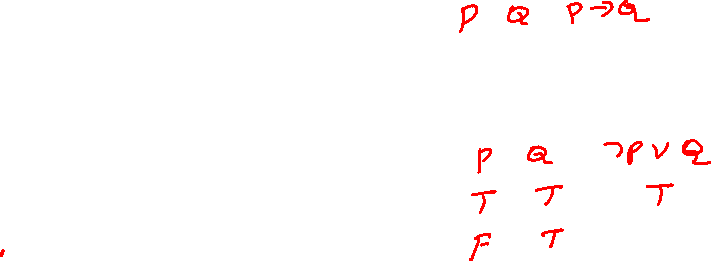 P Q P→Q
P Q ¬P∨Q
T T T
F T